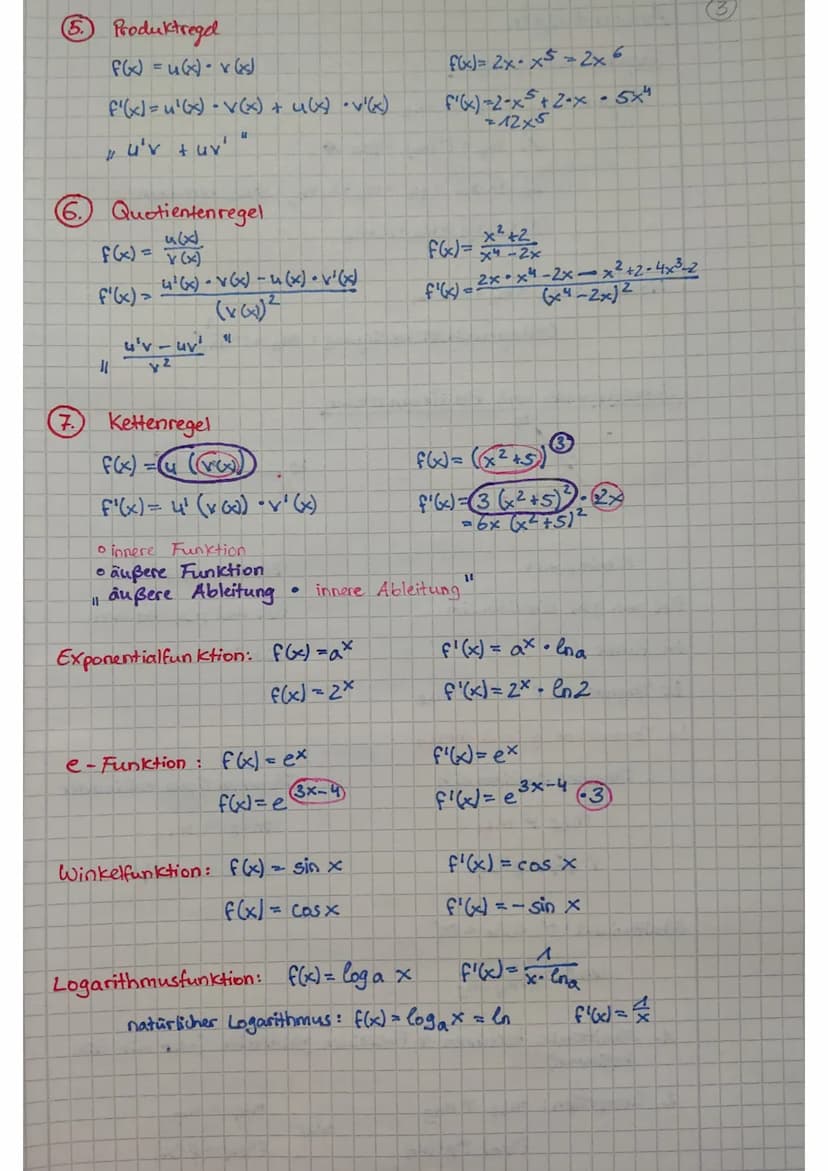 3
5. Produktregel
f(x) = u(x) · v(x)
f(x) = 2x · x⁵ = 2x⁶
f'(x) = u'(x) · v(x) + u(x) · v'(x)
f'(x) = 2 · x⁵ + 2 · x · 5x⁴
= 12x⁵
„ u'v + uv' "
6. Quotientenregel
f(x) = u(x) / v(x)
f(x) = x² + 2 / x⁴ - 2x
f'(x) = u'(x) · v(x) - u(x) · v'(x) / (v(x))²
f'(x) = 2x · x⁴ - 2x - x² + 2 · 4x³ - 2 / (x⁴ - 2x)²
„ u'v - uv' / v² "
7. Kettenregel
f(x) = u (v(x))
f(x) = (x² + 5)³
f'(x) = u' (v(x)) · v'(x)
f'(x) = 3 (x² + 5)² · 2x
= 6x (x² + 5)²
° innere Funktion
° äußere Funktion
„ äußere Ableitung · innere Ableitung "
Exponentialfunktion: f(x) = aˣ f'(x) = aˣ · ln a
f(x) = 2ˣ f'(x) = 2ˣ · ln 2
e - Funktion : f(x) = eˣ f'(x) = eˣ
f(x) = e^(3x-4) f'(x) = e^(3x-4) · 3
Winkelfunktion: f(x) = sin x f'(x) = cos x
f(x) = cos x f'(x) = - sin x
Logarithmusfunktion: f(x) = log a x f'(x) = 1 / x · ln a
natürlicher Logarithmus: f(x) = logₐ x = ln f'(x) = 1/x